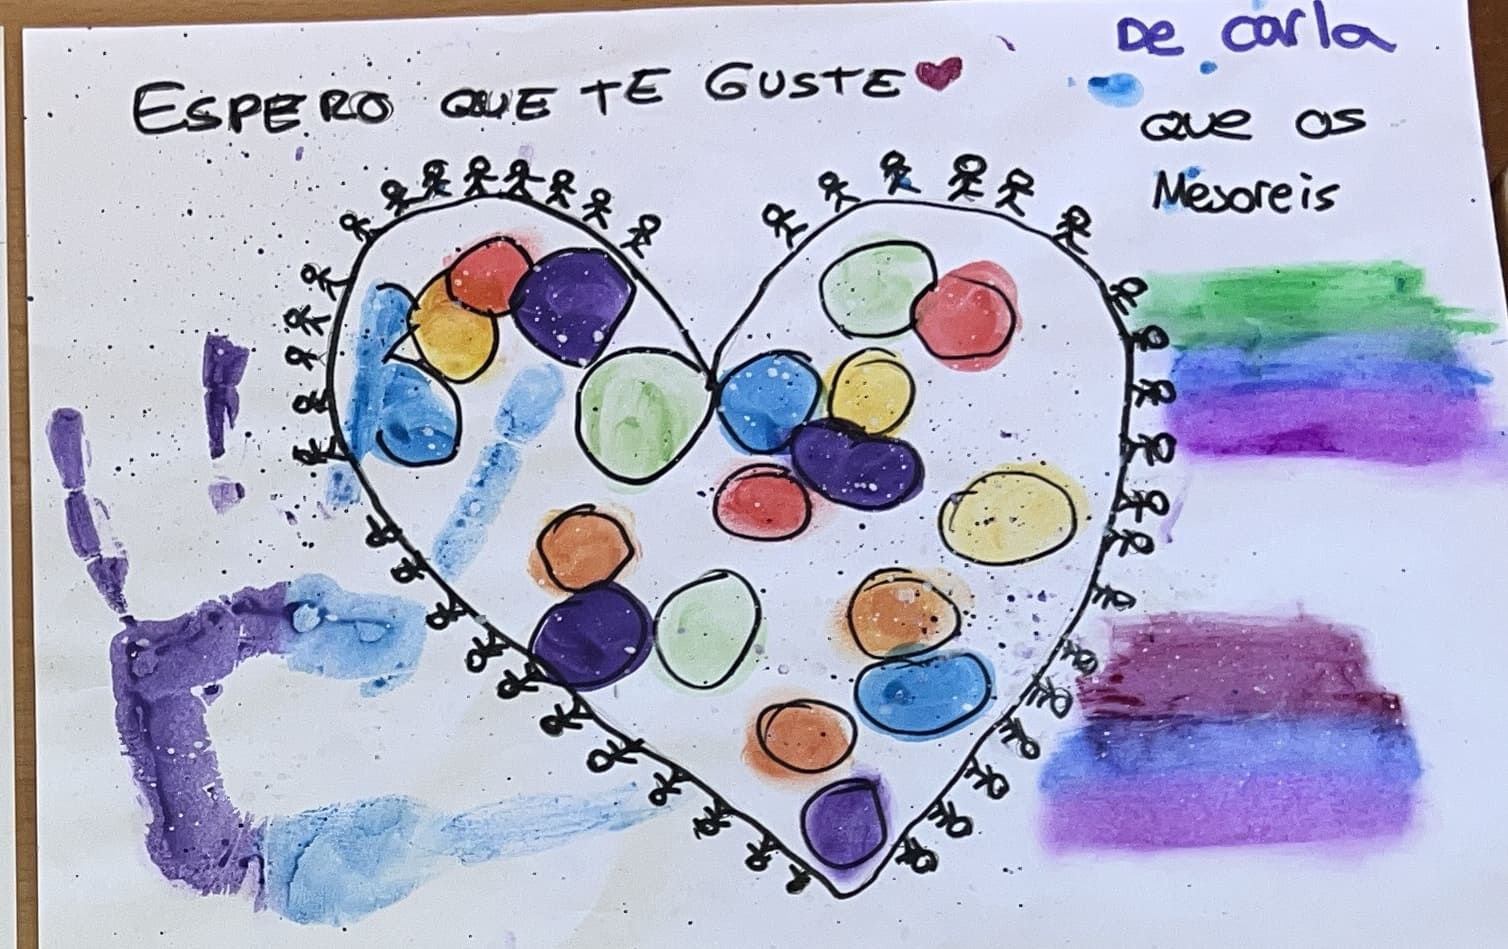 ESPERO QUE TE GUSTE
De carla
que os
Mejoreis